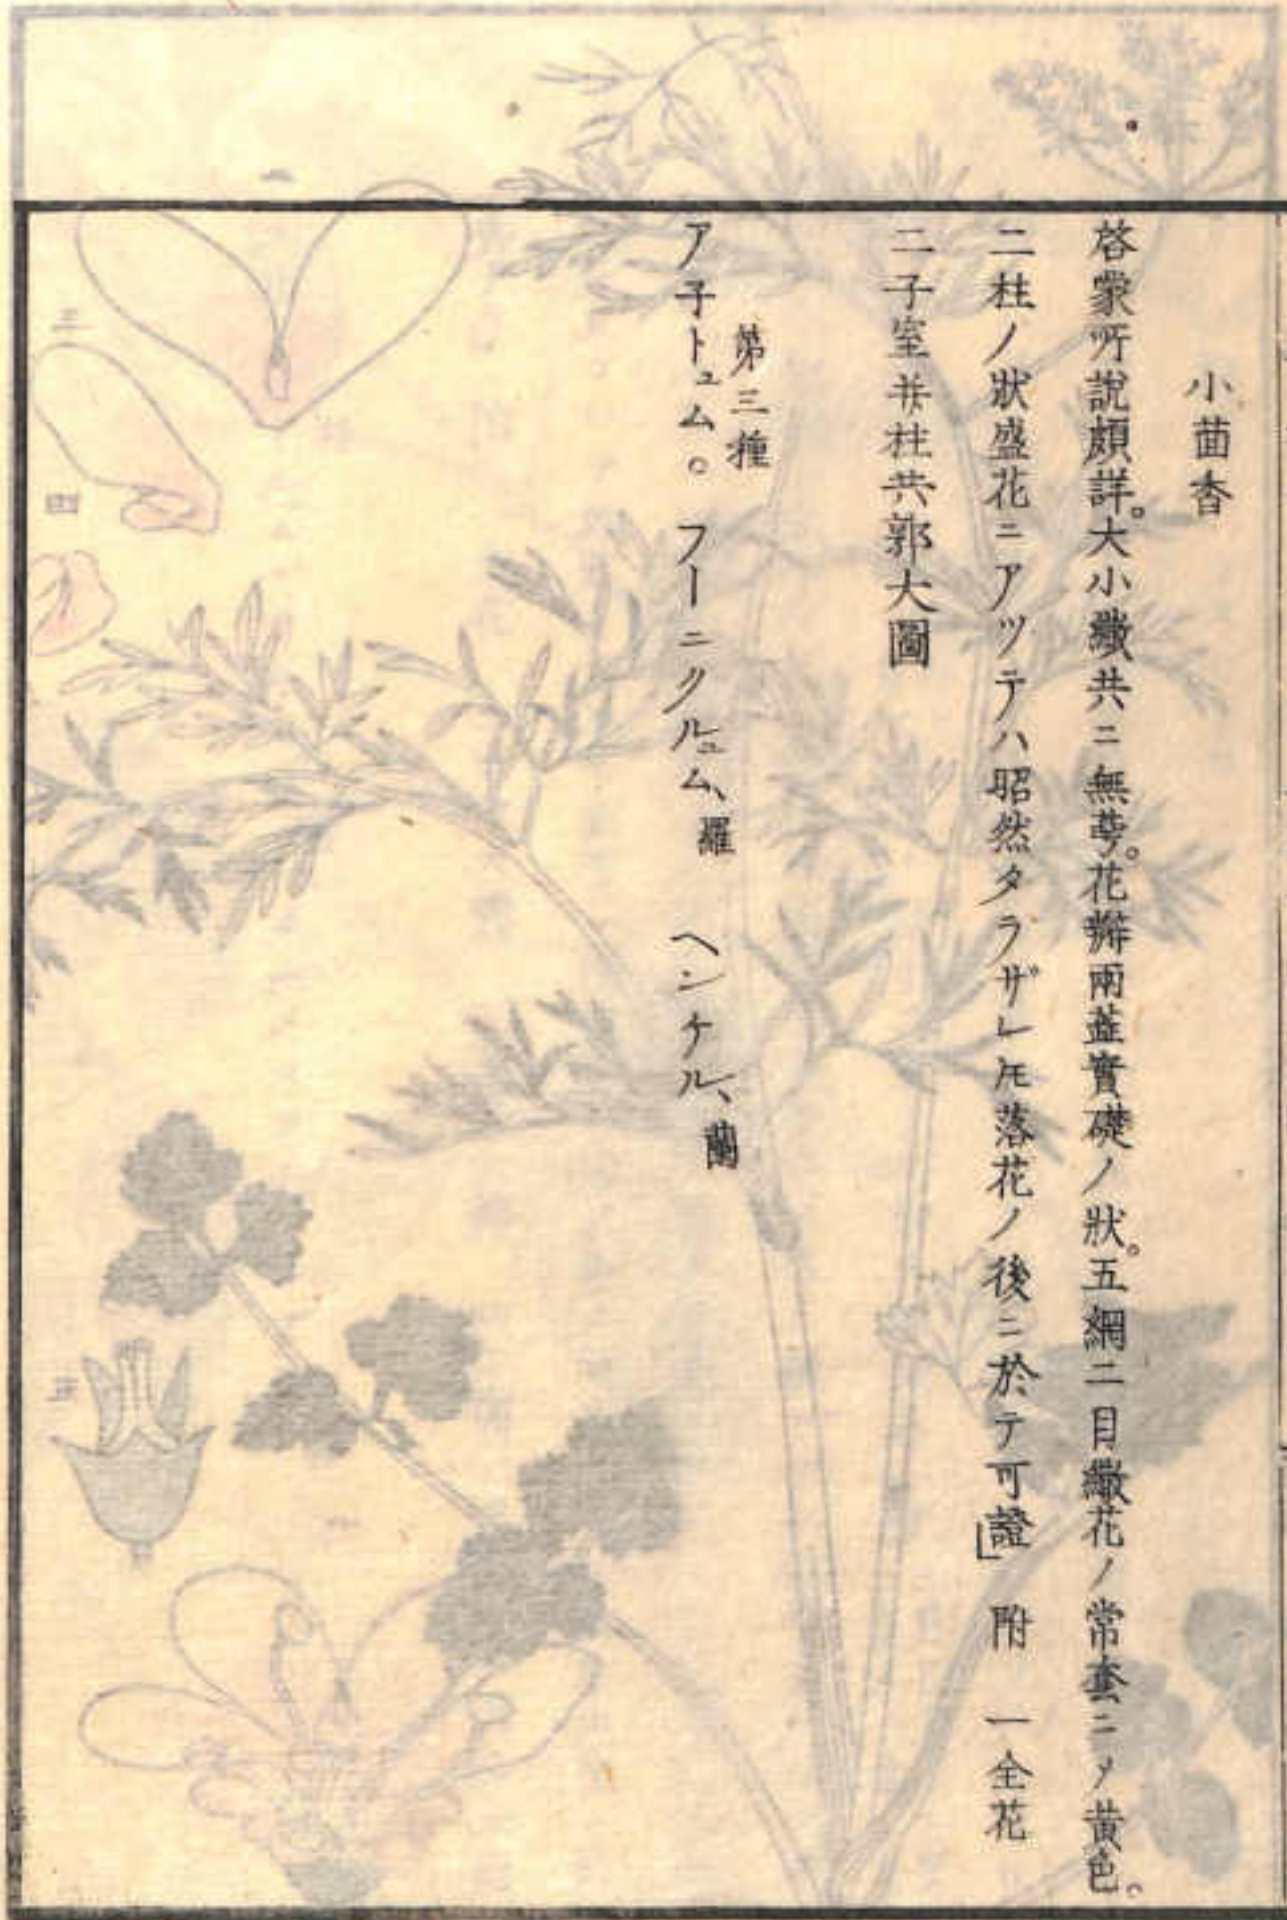 小茴香
啓蒙所說頗詳。大小繖共ニ無萼。花瓣兩蕋實礎ノ狀。五綱二目繖花ノ常套ニ〆黃色。
二柱ノ狀盛花ニアツテハ昭然タラザレ𪜈落花ノ後ニ於テ可證」 附 一全花
二子室并柱共郭大圖
第三種
ア子トュム。 フーニクルュム、羅 ヘンケル、蘭
三
四
五